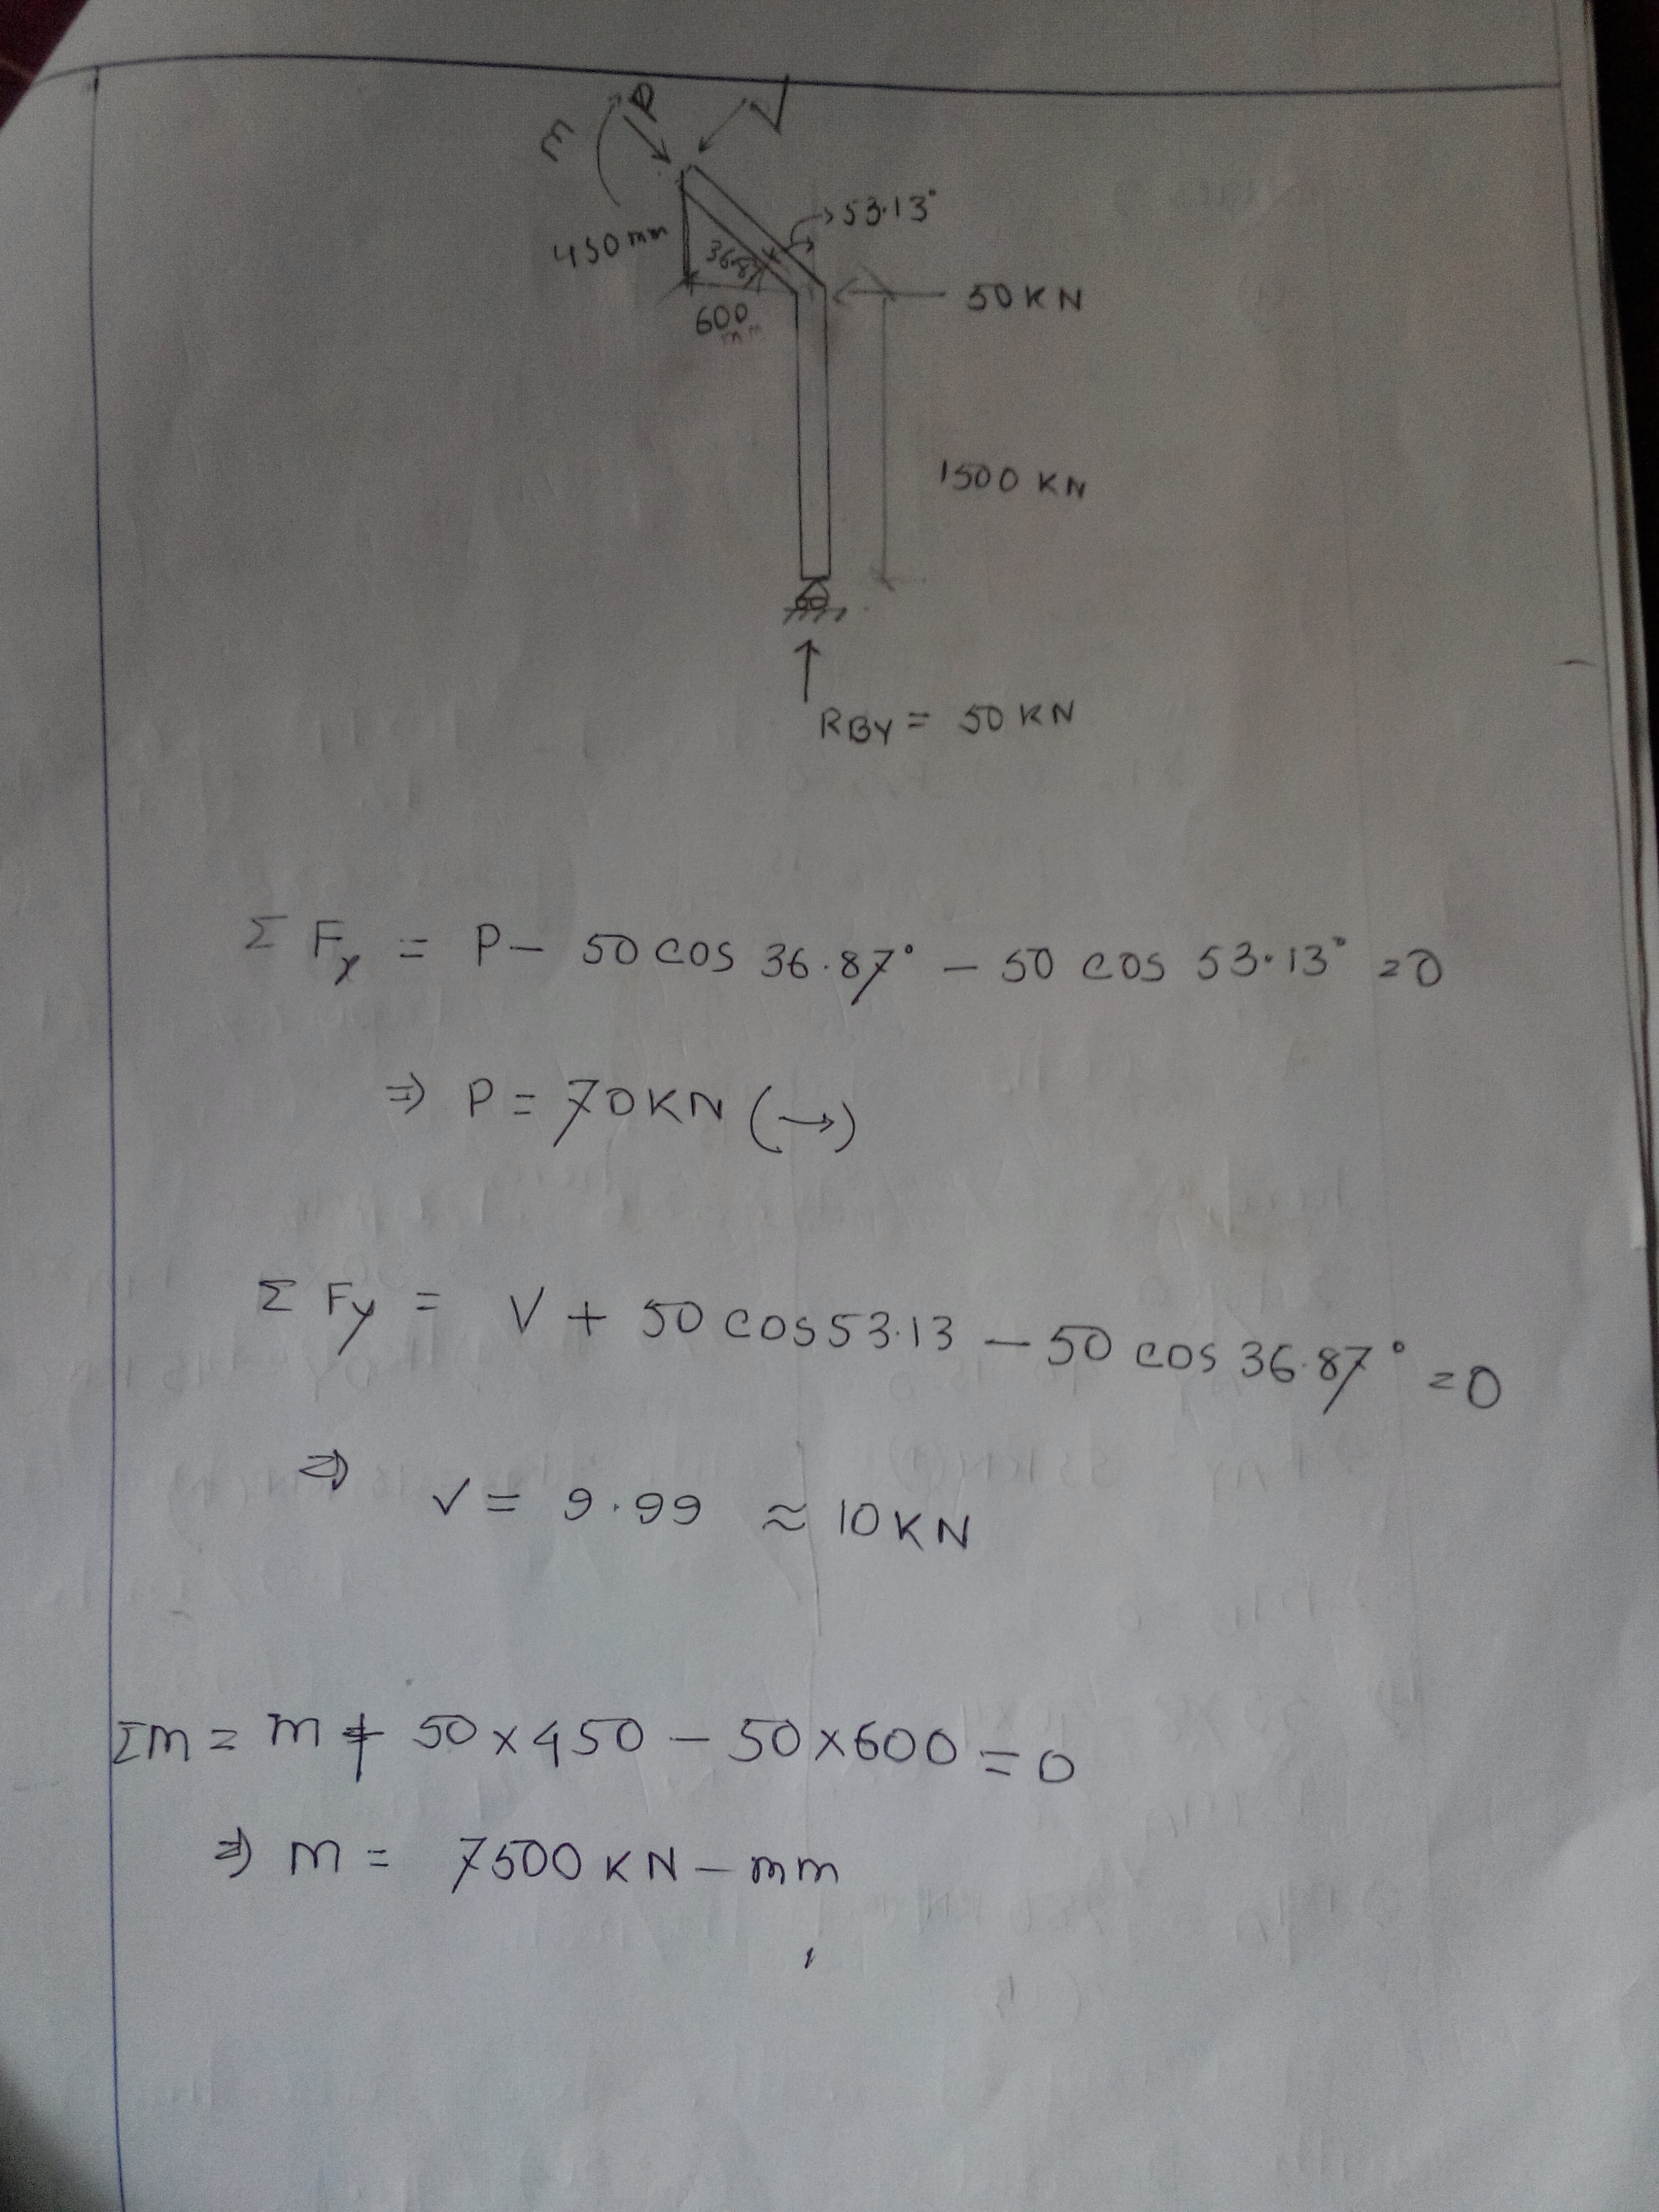 m P V
53.13°
450 mm
36.87
600 mm
50 KN
1500 KN
RBY = 50 KN
Σ Fx = P - 50 cos 36.87° - 50 cos 53.13° = 0
⇒ P = 70 KN (→)
Σ Fy = V + 50 cos 53.13 - 50 cos 36.87° = 0
⇒ V = 9.99 ≈ 10 KN
Σm = m + 50 × 450 - 50 × 600 = 0
⇒ m = 7500 KN - mm